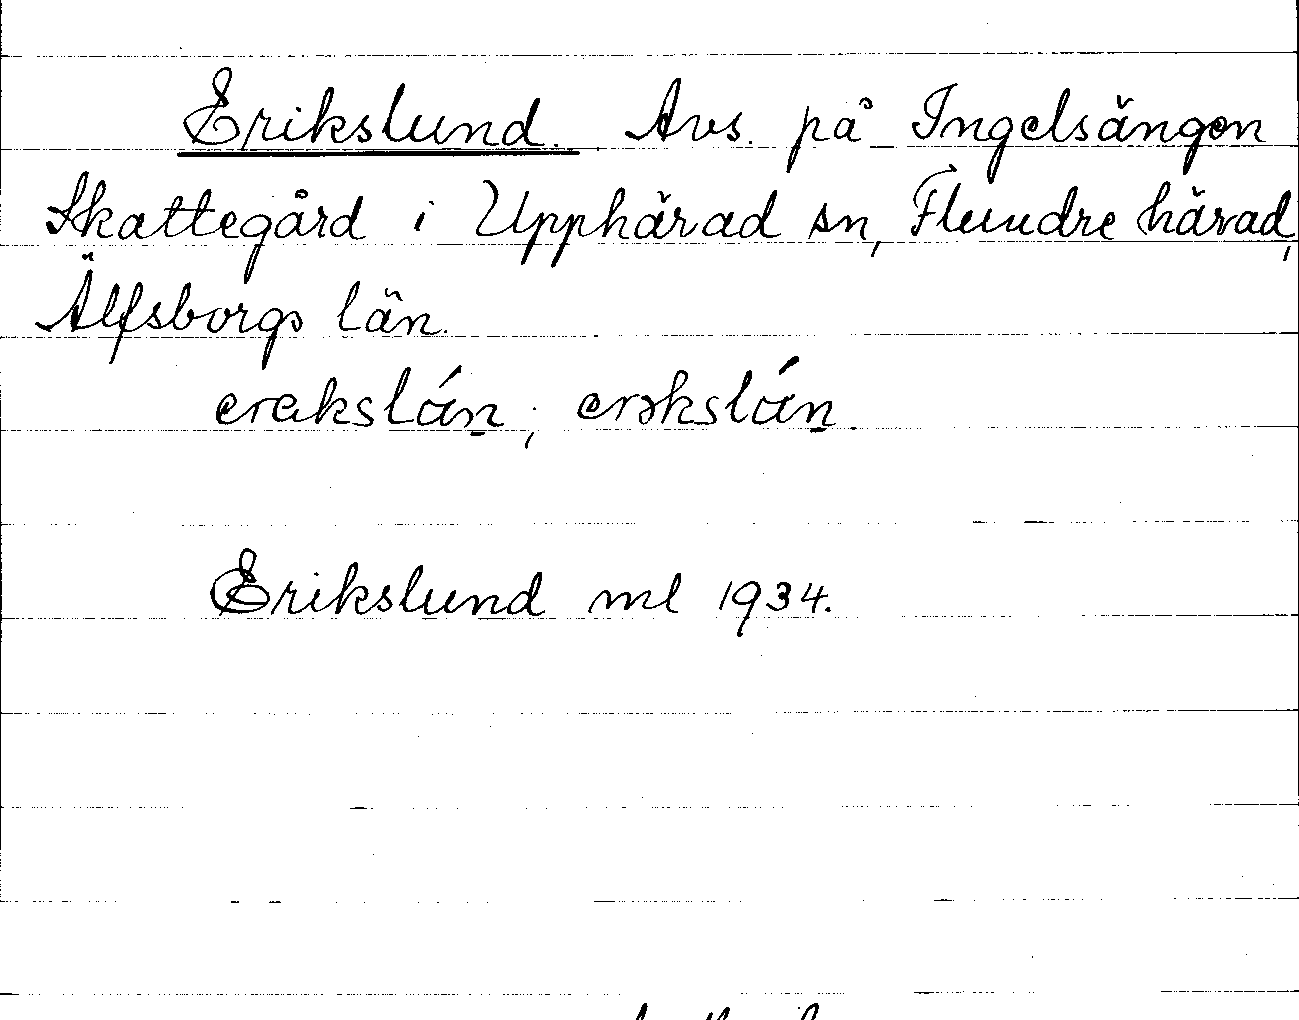 Erikslund. Avs. på Ingelsängen
Skattegård i Upphärad sn, Flundre härad,
Älfsborgs län.
erakslón; erəkslón.
Erikslund ml 1934.